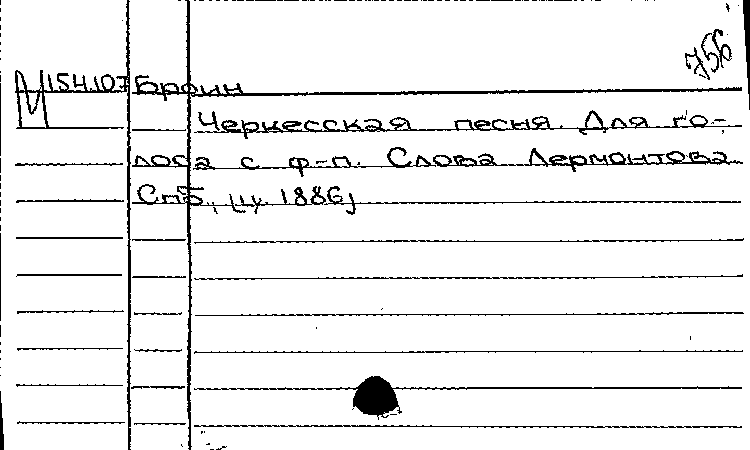 756
М 154.107 Броин
Черкесская песня. Для го-
лоса с ф-п. Слова Лермонтова
Спб., [ц. 1886]